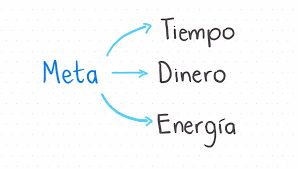 Meta
Tiempo
Dinero
Energía